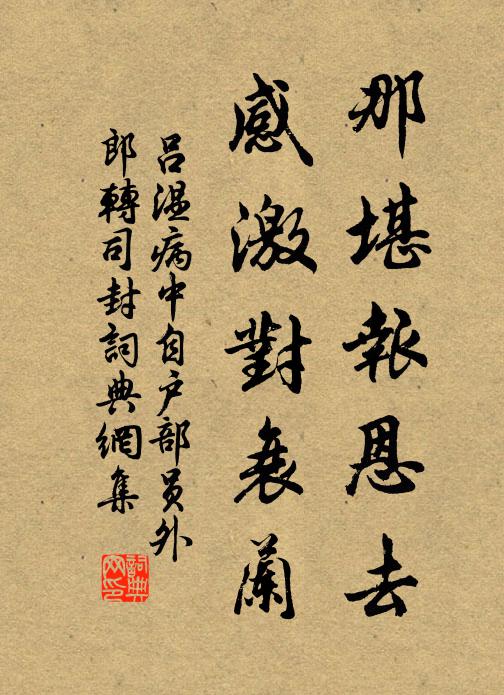 那堪報恩去
感激對衰蘭
呂溫病中自戶部員外
郎轉司封詞典網集
詞典
网印